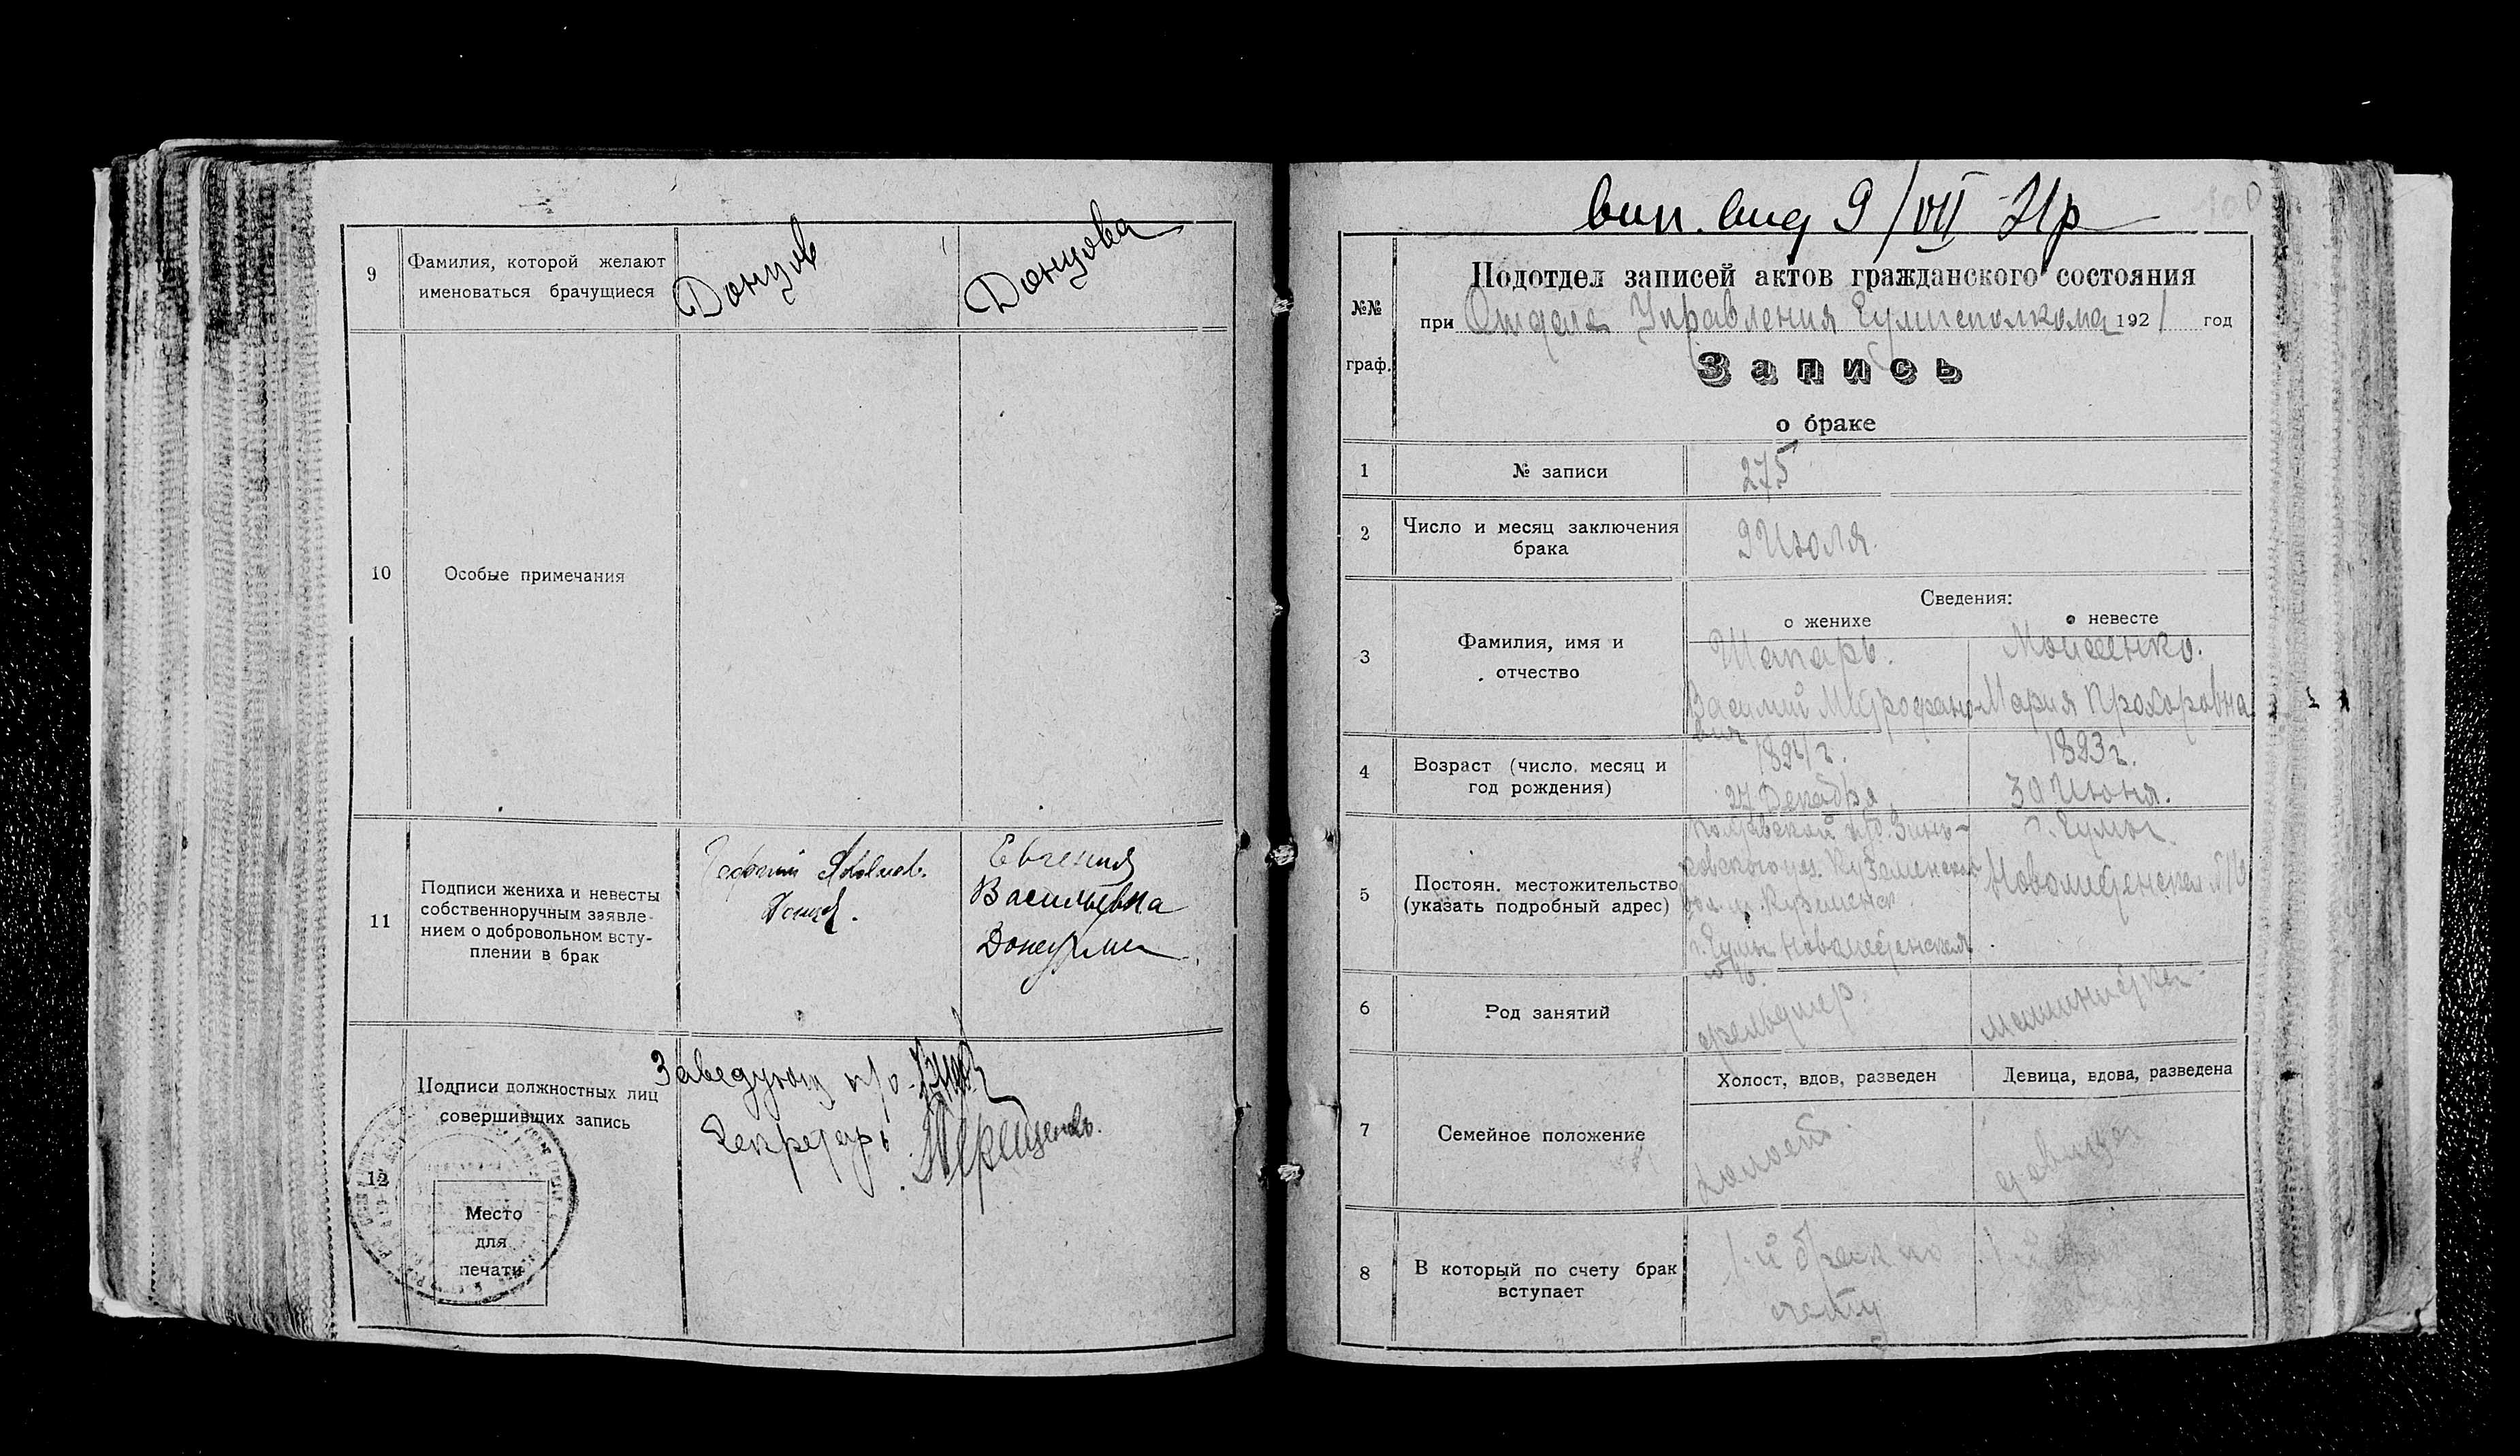 9
Фамилия, которой желают
именоваться брачущиеся
Донцов
Донцова
10
Особые примечания
11
Подписи жениха и невесты
собственноручным заявле-
нием о добровольном всту-
плении в брак
Евгения
Васильевна
12
Подписи должностных лиц
совершивших запись
Заведующ п/о
Секретарь
Место
для
печати
9/VII 21р
№№
граф.
Подотдел записей актов гражданского состояния
при Отделе Управления 1921 год
Запись
о браке
1
№ записи
275
2
Число и месяц заключения
брака
9 Июля.
3
Фамилия, имя и
отчество
Сведения:
о женихе
о невесте
Шапарь.
Моисенко.
Василий Митрофано-
вич
Мария Прохоровна
4
Возраст (число, месяц и
год рождения)
1894 г.
27 Декабря
1893 г.
30 Июня.
5
Постоян. местожительство
(указать подробный адрес)
Полтавской
г. Сумы
г. Сумы
6
Род занятий
фельдшер
машинистка
7
Семейное положение
Холост, вдов, разведен
Девица, вдова, разведена
холост.
девица
8
В который по счету брак
вступает
1-й брак по
счету
1-й